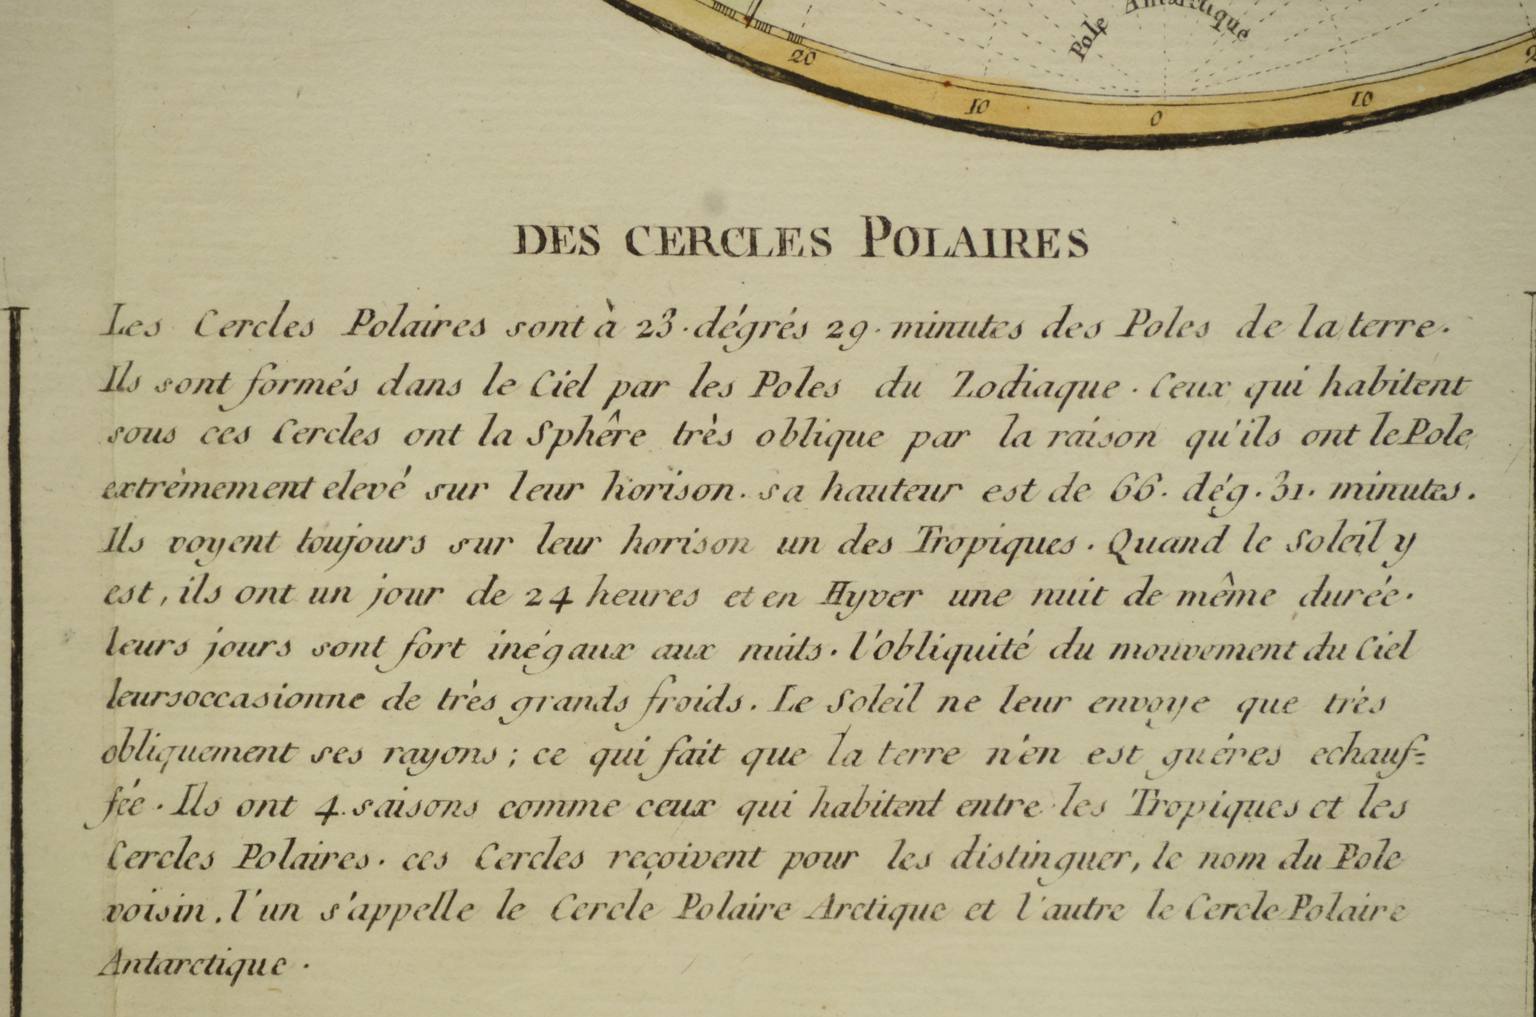 Pole Antarctique
20
10
0
10
DES CERCLES POLAIRES
Les Cercles Polaires sont à 23. dégrés 29. minutes des Poles de la terre.
Ils sont formés dans le Ciel par les Poles du Zodiaque. Ceux qui habitent
sous ces Cercles ont la Sphêre très oblique par la raison qu'ils ont le Pole
extrèmement elevé sur leur horison. sa hauteur est de 66. dég. 31. minutes.
Ils voyent toujours sur leur horison un des Tropiques. Quand le Soleil y
est, ils ont un jour de 24 heures et en Hyver une nuit de même durée.
leurs jours sont fort inégaux aux nuits. l'obliquité du mouvement du Ciel
leursoccasionne de très grands froids. Le Soleil ne leur envoye que très
obliquement ses rayons; ce qui fait que la terre n'en est guéres echauf=
fée. Ils ont 4. saisons comme ceux qui habitent entre les Tropiques et les
Cercles Polaires. ces Cercles reçoivent pour les distinguer, le nom du Pole
voisin. l'un s'appelle le Cercle Polaire Arctique et l'autre le Cercle Polaire
Antarctique.